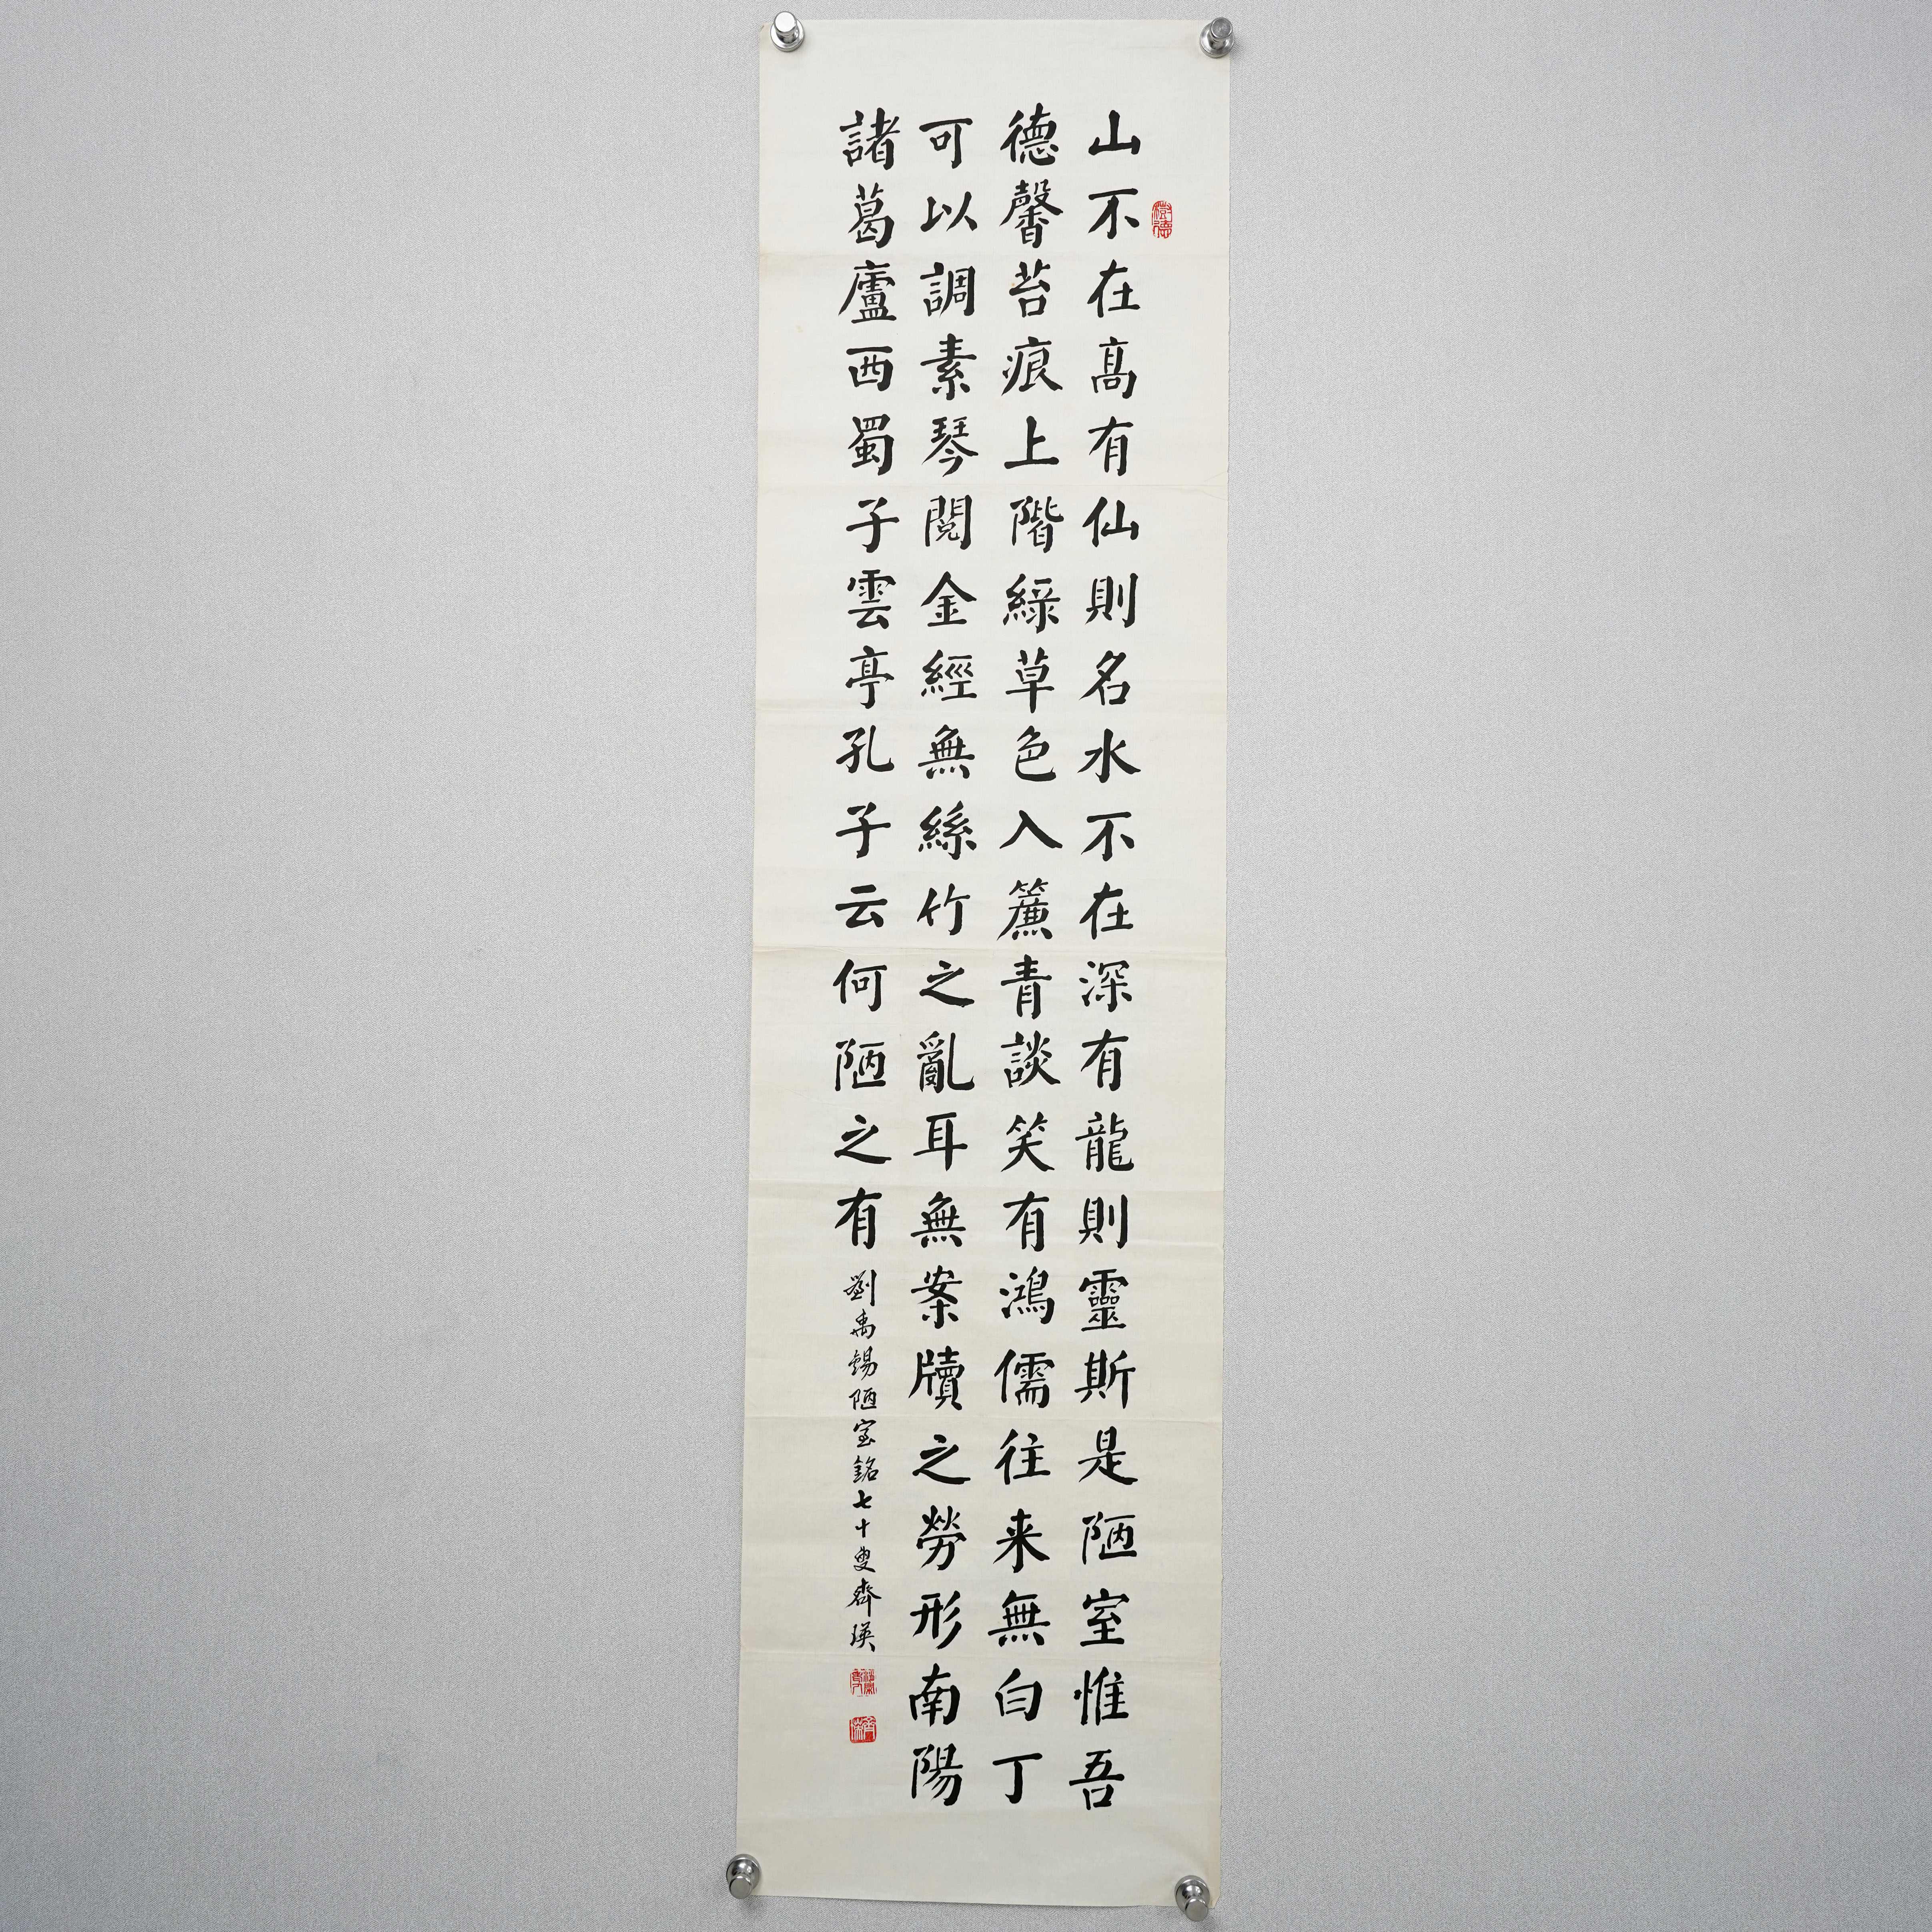 山不在高有仙則名水不在深有龍則靈斯是陋室惟吾
德馨苔痕上階綠草色入簾青談笑有鴻儒往来無白丁
可以調素琴閱金經無絲竹之亂耳無案牘之勞形南陽
諸葛廬西蜀子雲亭孔子云何陋之有
劉禹錫陋室銘七十叟齊瑛